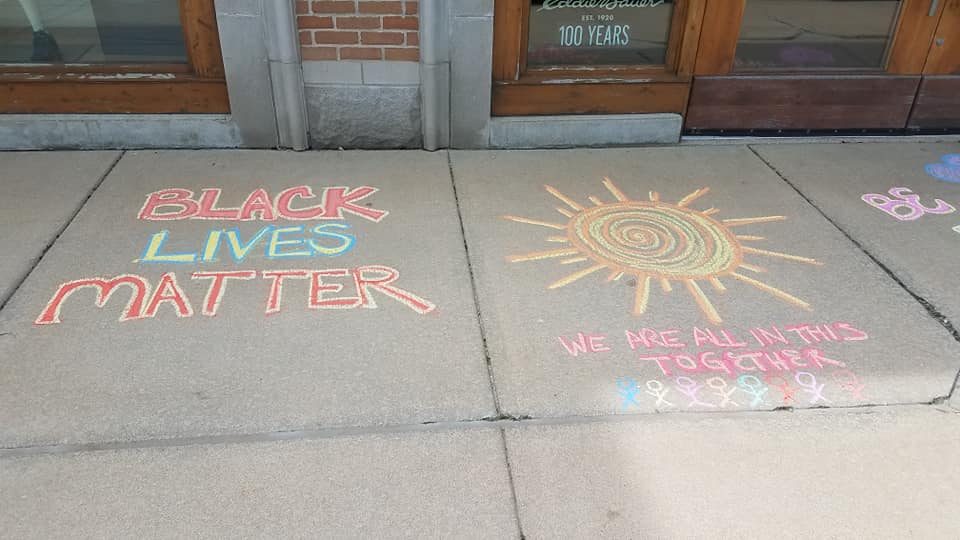 Eddie Bauer
EST. 1920
100 YEARS
BLACK
LIVES
MATTER
WE ARE ALL IN THIS
TOGETHER
BE